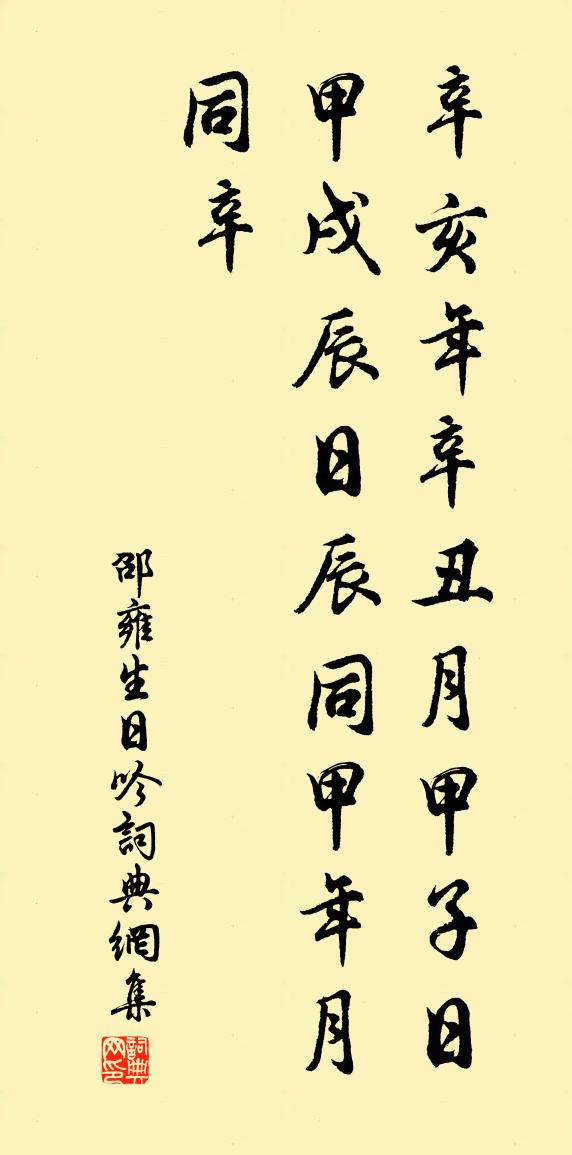 辛亥年辛丑月甲子日
甲戌辰日辰同甲年月
同辛
邵雍生日吟詞典網集
詞典网印